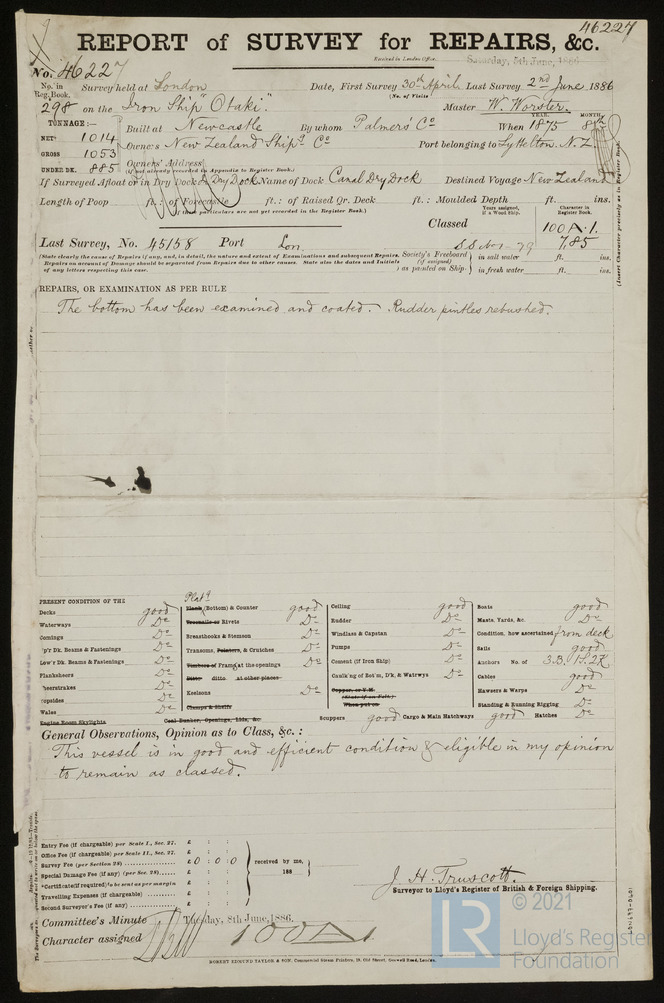 46227
REPORT of SURVEY for REPAIRS, &c.
Received in London Office, Saturday, 5th June, 1886
No. 46227
No. in Reg. Book. Survey held at London Date, First Survey 30th April Last Survey 2nd June 1886
(No. of Visits )
298 on the Iron Ship "Otaki" Master W. Worster.
TONNAGE:—
NET 1014
GROSS 1053
UNDER DK. 885
Built at Newcastle By whom Palmers' Co When 1875 YEAR. MONTH. 8
Owners New Zealand Shipg Co Port belonging to Lyttelton. N.Z.
Owners' Address
(if not already recorded in Appendix to Register Book.)
If Surveyed Afloat or in Dry Dock Dry Dock Name of Dock Canal Dry Dock Destined Voyage New Zealand
Length of Poop ft.: of Forecastle ft.: of Raised Qr. Deck ft.: Moulded Depth ft. ins.
(If these particulars are not yet recorded in the Register Book.)
Years assigned, if a Wood Ship. Character in Register Book.
Classed 100A.1.
Last Survey, No. 45158 Port Lon. 7,85
(State clearly the cause of Repairs if any, and, in detail, the nature and extent of Examinations and subsequent Repairs.
Repairs on account of Damage should be separated from Repairs due to other causes. State also the dates and Initials
of any letters respecting this case.
Society's Freeboard (if assigned) as painted on Ship
in salt water ft. ins.
in fresh water ft. ins.
(Insert Character precisely as in Register Book.)
REPAIRS, OR EXAMINATION AS PER RULE
The bottom has been examined and coated. Rudder pintles rebushed.
PRESENT CONDITION OF THE
Decks good
Waterways Do
Comings Do
Up'r Dk. Beams & Fastenings Do
Low'r Dk. Beams & Fastenings Do
Planksheers Do
Do
Topsides Do
Wales Do
Engine Room Skylights
Platg
Plank (Bottom) & Counter good
Treenails or Rivets Do
Breasthooks & Stemson Do
Transoms, Pointers, & Crutches Do
Timbers of Frame at the openings Do
Ditto ditto at other places
Keelsons Do
Clamps & Shelfs
Coal Bunker, Openings, Lids, &c.
Ceiling good
Rudder Do
Windlass & Capstan Do
Pumps Do
Cement (if Iron Ship) Do
Caulk'ng of Bot'm, D'k, & Watrwys Do
Copper, or Y.M.
(State if on Felt.)
When put on
Scuppers good Cargo & Main Hatchways good Hatches Do
Boats good
Masts, Yards, &c. Do
Condition, how ascertained from deck
Sails good
Anchors No. of 3.B, 1S. 2K
Cables good
Hawsers & Warps Do
Standing & Running Rigging Do
General Observations, Opinion as to Class, &c.:
This vessel is in good and efficient condition & eligible in my opinion
to remain as classed.
Entry Fee (if chargeable) per Scale I., Sec. 27. £ : :
Office Fee (if chargeable) per Scale II., Sec. 27. £ : :
Survey Fee (per Section 28) £ 0 : 0 : 0
Special Damage Fee (if any) (per Sec. 28) £ : :
*Certificate (if required) to be sent as per margin £ : :
Travelling Expenses (if chargeable) £ : :
Second Surveyor's Fee (if any) £ : :
received by me,
188
J. H. Truscott.
Surveyor to Lloyd's Register of British & Foreign Shipping.
Committee's Minute Tuesday, 8th June, 1886.
Character assigned 100A1
ROBERT EDMUND TAYLOR & SON, Commercial Steam Printers, 19, Old Street, Goswell Road, London.
© 2021
LR
Lloyd's Register
Foundation